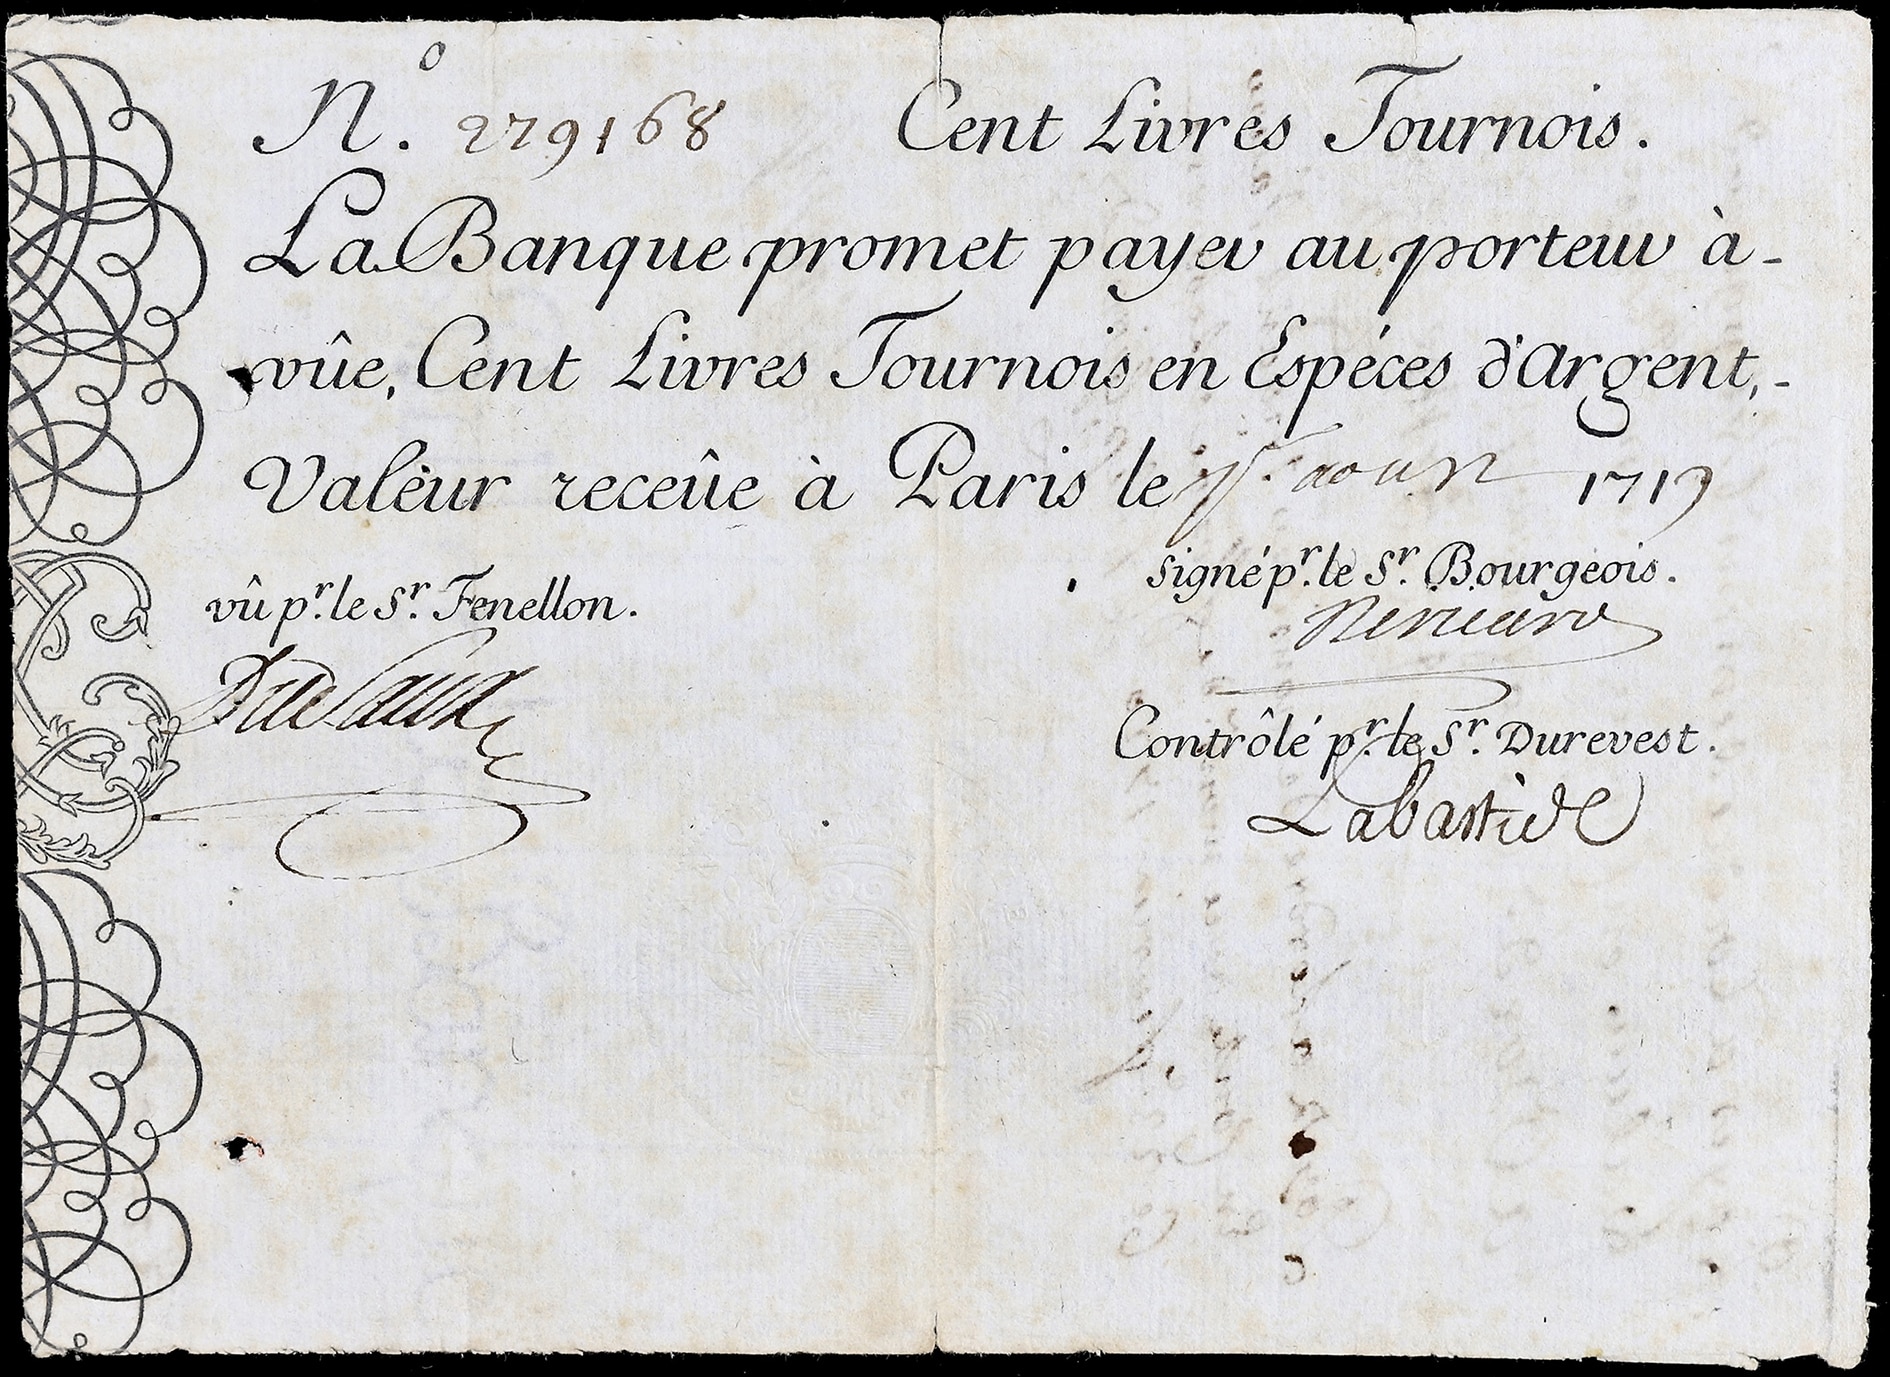 N.º 229168 Cent Livres Tournois.
La Banque promet payer au porteur à-
vûe, Cent Livres Tournois en Espéces d'Argent,-
Valeur receûe à Paris le 1719
vû p.r le S.r Fenellon.
signé p.r le S.r Bourgeois.
Contrôlé p.r le S.r Durevest.
Labastide